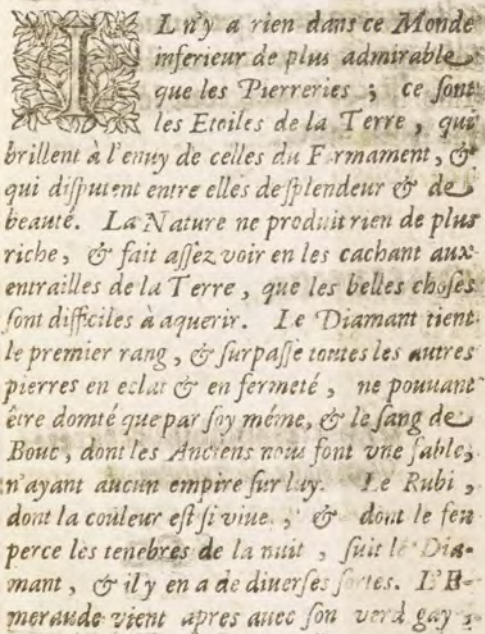 IL n'y a rien dans ce Monde
inferieur de plus admirable
que les Pierreries ; ce ſont
les Etoiles de la Terre , qui
brillent à l'enuy de celles du Firmament , &
qui diſputent entre elles de ſplendeur & de
beauté. La Nature ne produit rien de plus
riche , & fait aſſez voir en les cachant aux
entrailles de la Terre , que les belles choſes
ſont difficiles à aquerir. Le Diamant tient
le premier rang , & ſurpaſſe toutes les autres
pierres en eclat & en fermeté , ne pouuant
être domté que par ſoy méme, & le ſang de
Bouc , dont les Anciens nous font vne fable,
n'ayant aucun empire ſur luy. Le Rubi ,
dont la couleur eſt ſi viue , & dont le feu
perce les tenebres de la nuit , ſuit le Dia-
mant , & il y en a de diuerſes ſortes. L'E-
meraude vient apres auec ſon verd gay ,